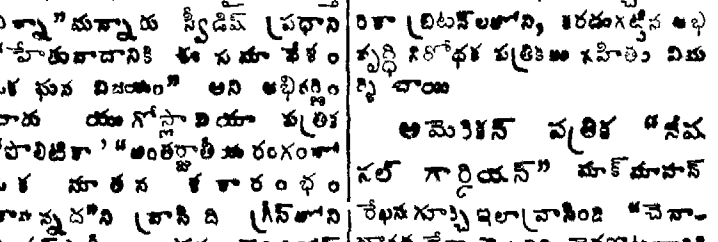 న్నా” మన్నారు స్వీడిష్ ప్రధాని
హేతువాదానికి ఈ సమావేశం
ఘన విజయం” అని అభివర్ణిం
యుగోస్లావియా పత్రిక
పొలిటికా ' “అంతర్జాతీయ రంగంలో
ఒక నూతన శకారంభం
ది గ్రీస్‌లోని
రికా బ్రిటన్‌లలోని, కరడుగట్టిన అభి
వృద్ధి నిరోధక పత్రికలు గర్హితం విమ
ర్శి చాయి
అమెరికన్ పత్రిక “నేష
నల్ గార్డియన్” మాక్‌మాహన్
రేఖను గూర్చి ఇలా వ్రాసింది “చైనా-